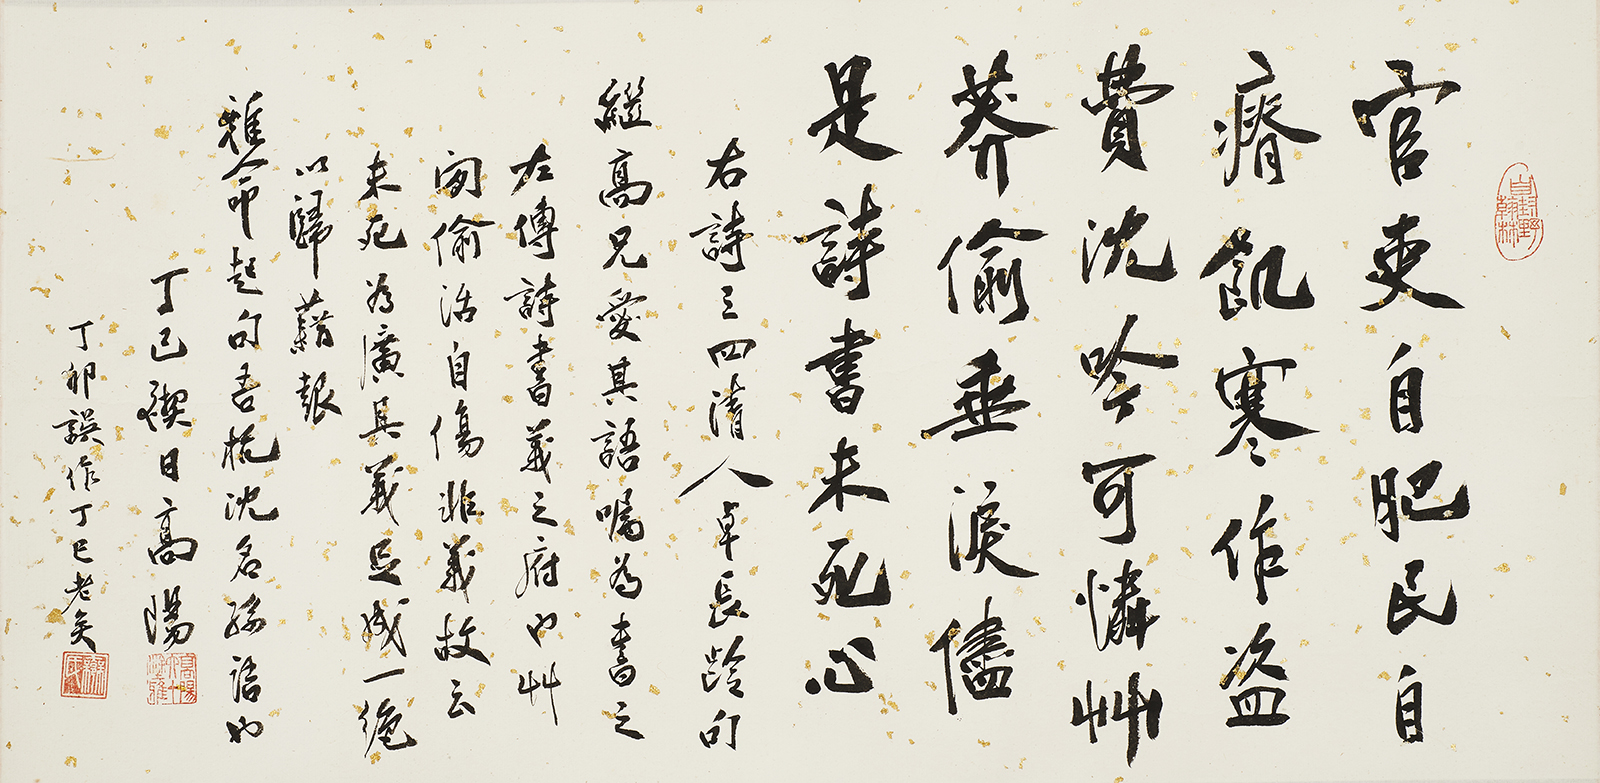 自封野翰林
官吏自肥民自
瘠飢寒作盜
費沈吟可憐艸
莽偷垂淚儘
是詩書未死心
右詩三四清人卓長齡句
繼高兄愛其語囑為書之
左傳詩書義之府也艸
間偷活自傷非義故云
未死為廣其義足成一絕
以歸藉報
雅命起句吾杭沈名孫語也
丁巳禊日高陽
丁卯誤作丁巳老矣